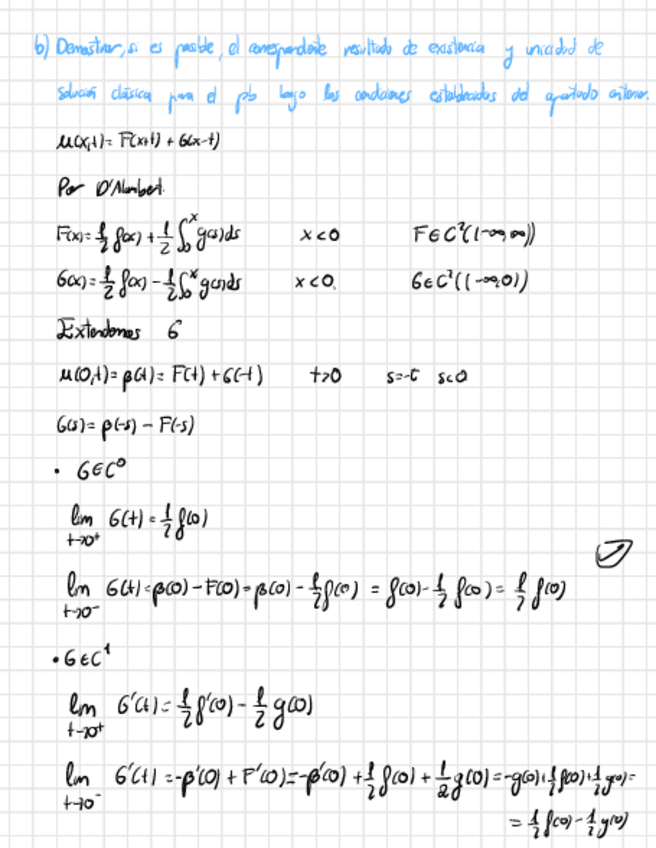 b) Demostrar, si es posible, el correspondiente resultado de existencia y unicidad de
solución clásica para el pb bajo las condiciones establecidas del apartado anterior.
u(x,t) = F(x+t) + G(x-t)
Por D'Alembert.
F(x) = 1/2 f(x) + 1/2 ∫₀ˣ g(s)ds x<0 F∈C²((-∞,∞))
G(x) = 1/2 f(x) - 1/2 ∫₀ˣ g(s)ds x<0. G∈C²((-∞,0))
Extendemos G
u(0,t) = β(t) = F(t) + G(-t) t>0 s=-t s<0
G(s) = β(-s) - F(-s)
• G∈C⁰
lim t→0⁺ G(t) = 1/2 f(0)
lim t→0⁻ G(t) = β(0) - F(0) = β(0) - 1/2 f(0) = f(0) - 1/2 f(0) = 1/2 f(0)
• G∈C¹
lim t→0⁺ G'(t) = 1/2 f'(0) - 1/2 g(0)
lim t→0⁻ G'(t) = -β'(0) + F'(0) = -β'(0) + 1/2 f(0) + 1/2 g(0) = -g(0) + 1/2 f(0) + 1/2 g(0) =
= 1/2 f(0) - 1/2 g(0)